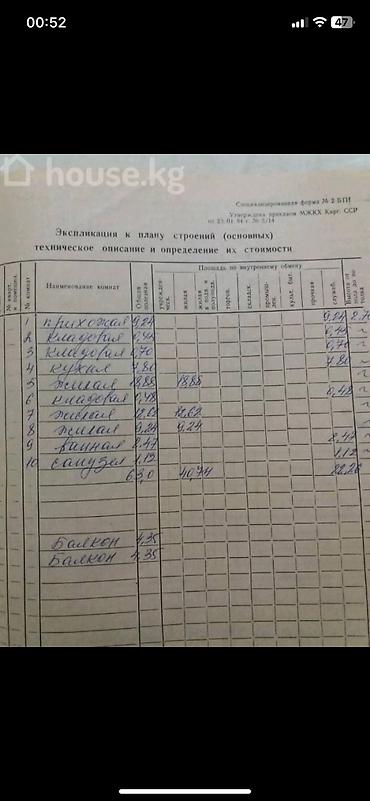 00:52
47
house.kg
Специализированная форма № 2 БТИ
Утверждена приказом МЖКХ Кирг. ССР
Экспликация к плану строений (основных)
техническое описание и определение их стоимости
№ комнат
Наименование комнат
Общая полезная
Площадь по внутреннему обмеру
учрежденческ.
жилая
жилая в подв. и полуподв.
торгов.
складск.
промышлен.
культ. быт.
прочая
служеб.
1 прихожая 9,24 9,24
2 кладовая 0,45 0,45
3 кладовая 0,70 0,70
4 кухня 7,80 7,80
5 жилая 18,88 18,88
6 кладовая 0,48 0,48
7 жилая 12,62 12,62
8 жилая 9,24 9,24
9 ванная 2,47 2,47
10 санузел 1,12 1,12
63,0 40,74 22,26
Балкон 4,35
Балкон 4,35